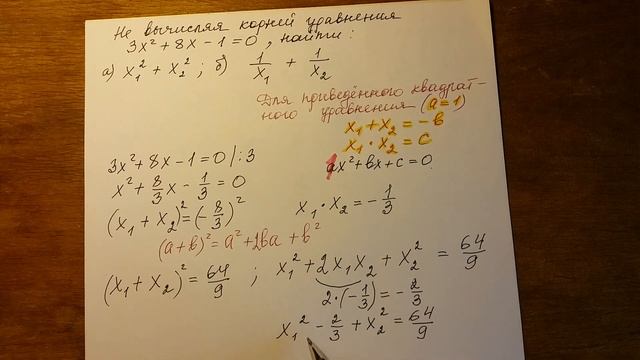 Не вычисляя корней уравнения
3x² + 8x - 1 = 0, найти:
а) x₁² + x₂²; б) 1/x₁ + 1/x₂
Для приведённого квадрат-
ного уравнения (a = 1)
x₁ + x₂ = -b
x₁ · x₂ = c
ax² + bx + c = 0
3x² + 8x - 1 = 0 |: 3
x² + 8/3 x - 1/3 = 0
(x₁ + x₂)² = (-8/3)²
x₁ · x₂ = -1/3
(a+b)² = a² + 2ba + b²
(x₁ + x₂)² = 64/9 ; x₁² + 2x₁x₂ + x₂² = 64/9
2·(-1/3) = -2/3
x₁² - 2/3 + x₂² = 64/9